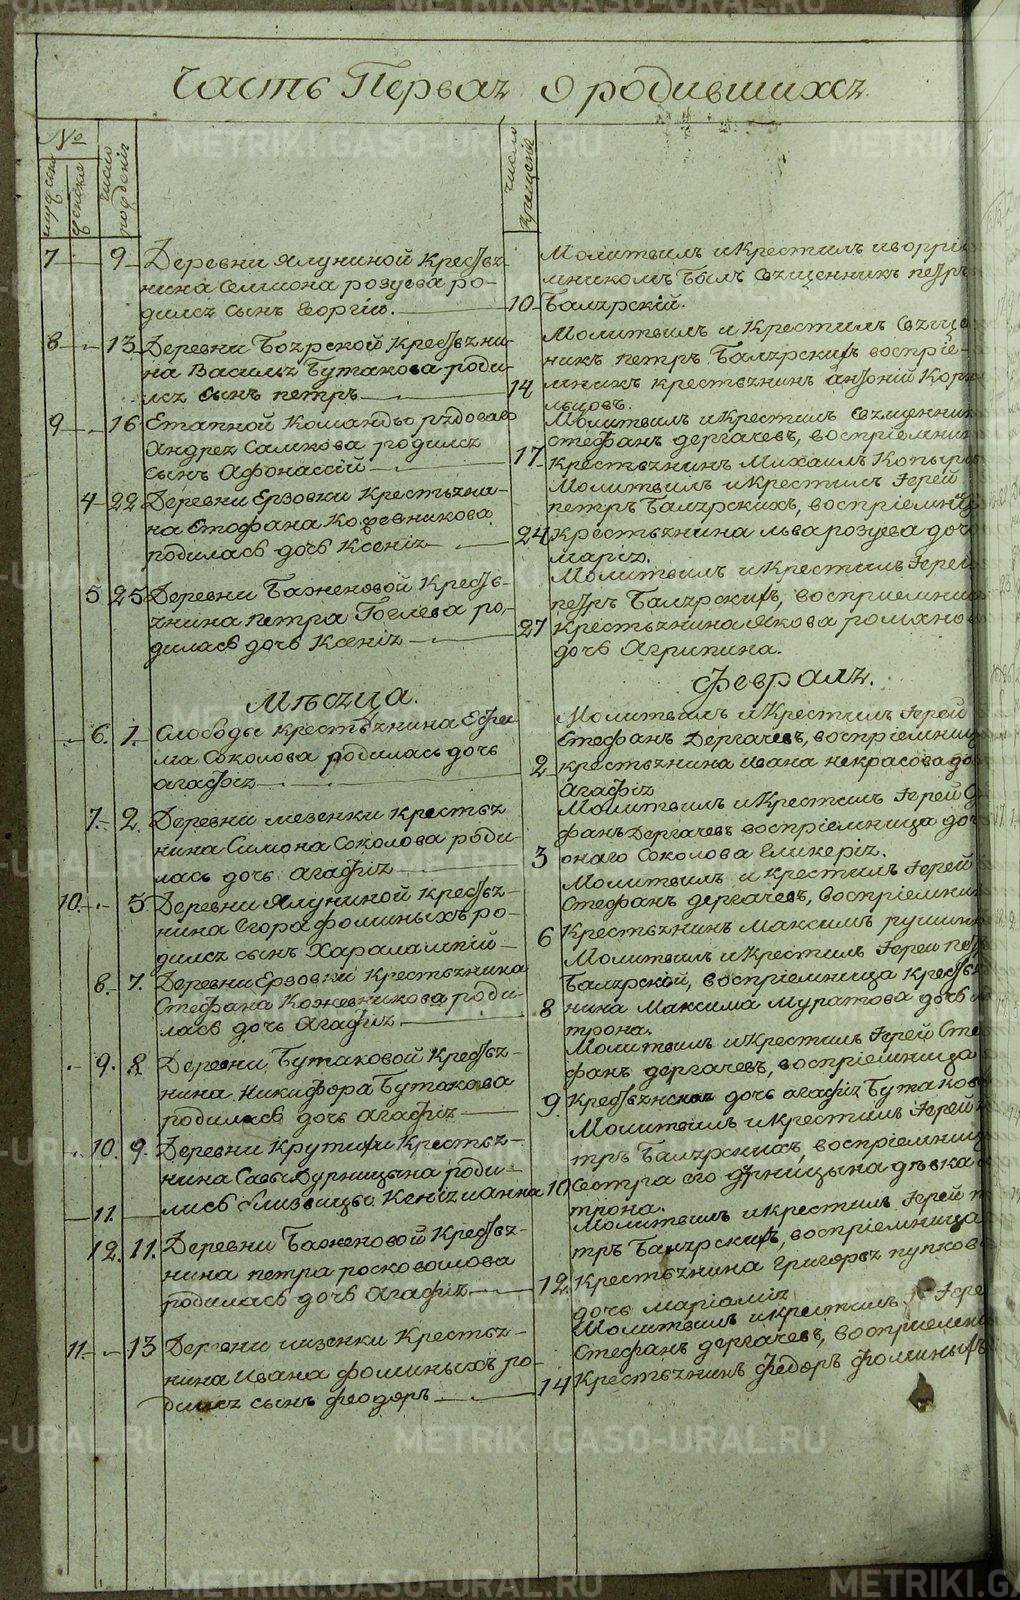 Часть Первая О родившихся
№
мужска
женска
число рождения
число крещения
7 9 Деревни Ялуниной крестья-
нина Симиона розуева ро-
дился сынъ Георгій.
10 Молитвилъ и Крестилъ и воспріе
мникомъ былъ Священникъ петръ
Балярскій.
8 13 Деревни Боярской крестьяни-
на Василья Бутакова роди-
лся сынъ петръ
14 Молитвилъ и Крестилъ Свяще
никъ петръ Балярскихъ воспріе-
мникъ крестьянинъ антоній Кор
льцовъ.
9 16 Етапной Команды рядоваго
Андрея Салкова родился
сынъ Афонассій
17 Молитвилъ и Крестилъ Священник
стефанъ дергачевъ, воспріемник
крестьянинъ Михаилъ Копыр
4 22 Деревни Ерзовки Крестьяни-
на Стефана Кожевникова
родилась дочь Ксенія
24 Молитвилъ и Крестилъ Іерей
петръ Балярскихъ, воспріемниц
крестьянина льва розуева доч
марія.
5 25 Деревни Баженовой Кресть-
янина петра Гоглева ро-
дилась дочь Ксенія
27 Молитвилъ и Крестилъ Іерей
петръ Балярскихъ, воспріемниц
крестьянина якова романо
дочь Агрипина.
Мѣсяца. Февраля.
6. 1. Слободы крестьянина Ефи
ма Соколова родилась дочь
агафія
2 Молитвилъ и Крестилъ Іерей
Стефанъ Дергачевъ, воспріемниц
крестьянина Ивана некрасова до
Агафія
7. 2. Деревни мезенки крестья
нина Симона Соколова роди
лась дочь агафія
3 Молитвилъ и Крестилъ Іерей С
фанъ Дергачевъ воспріемница доч
онаго Соколова Гликерія.
10. 5 Деревни Ялуниной крестья-
нина Егора фоминыхъ ро-
дился сынъ Харалампій
6 Молитвилъ и крестилъ Іерей
Стефанъ дергачевъ, воспріемник
крестьянинъ максимъ рушин
8. 7. Деревни Ерзовки Крестьянина
Стефана Кожевникова роди-
лась дочь Агафія
8 Молитвилъ и Крестилъ Іереи пет
Балярской, воспріемница кресть
нина Максима Муратова дочь
трона.
9. 8 Деревни Бутаковой Крестья-
нина Никифора Бутакова
родилась дочь агафія
9 Молитвилъ и Крестилъ Іерей Сте
фанъ дергачевъ, воспріемница
Крестьянская дочь агафія Бутаков
10. 9. Деревни Крутихи Крестья-
нина Савы Дурницына роди-
11. лись близницы. Ксенія и анна
10 Молитвилъ и крестилъ Іерей
тръ Балярскихъ, воспріемниц
сестра его дурницына дѣвка
трона.
12. 11. Деревни Баженовой Крестья-
нина петра росковалова
родилась дочь Агафія
12. Молитвилъ и крестилъ Іерей п
тръ Балярскихъ, воспріемница
Крестьянина Григорья пупков
дочь маріамія
11. 13 Деревни мизенки Крестья-
нина Ивана фоминыхъ ро-
дился сынъ феодоръ
14 Молитвилъ и крестилъ Іере
Стефанъ дергачевъ, воспріемни
Крестьянинъ федоръ фоминыхъ